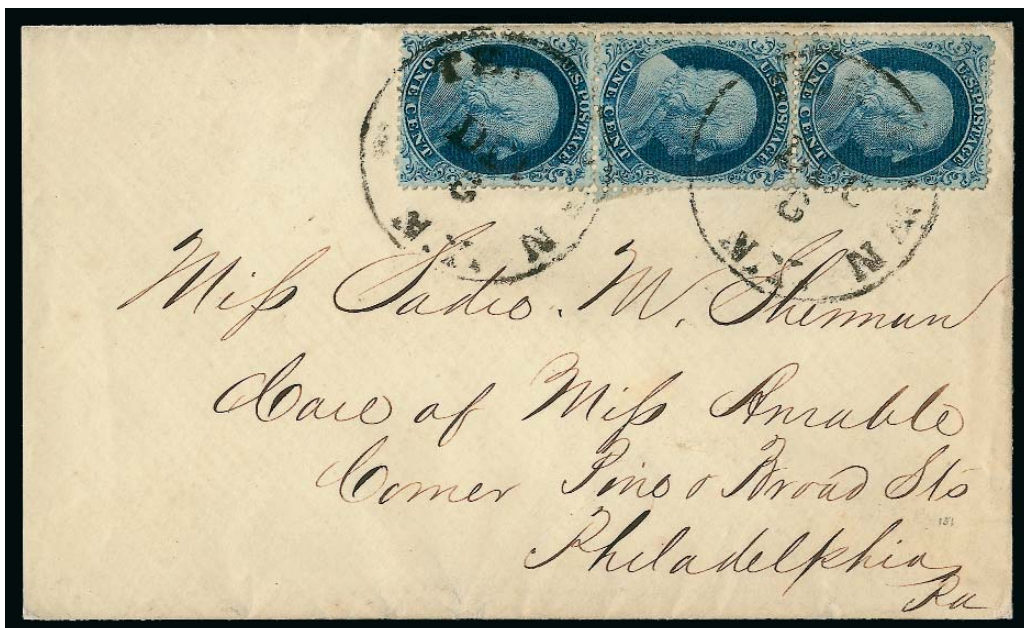 U.S. POSTAGE
ONE CENT
U.S. POSTAGE
ONE CENT
U.S. POSTAGE
ONE CENT
DEC
N.Y.
N.Y.
Miss Sadie. M. Sherman
Care of Miss Anable
Corner Pine & Broad Sts
Philadelphia
Pa
151